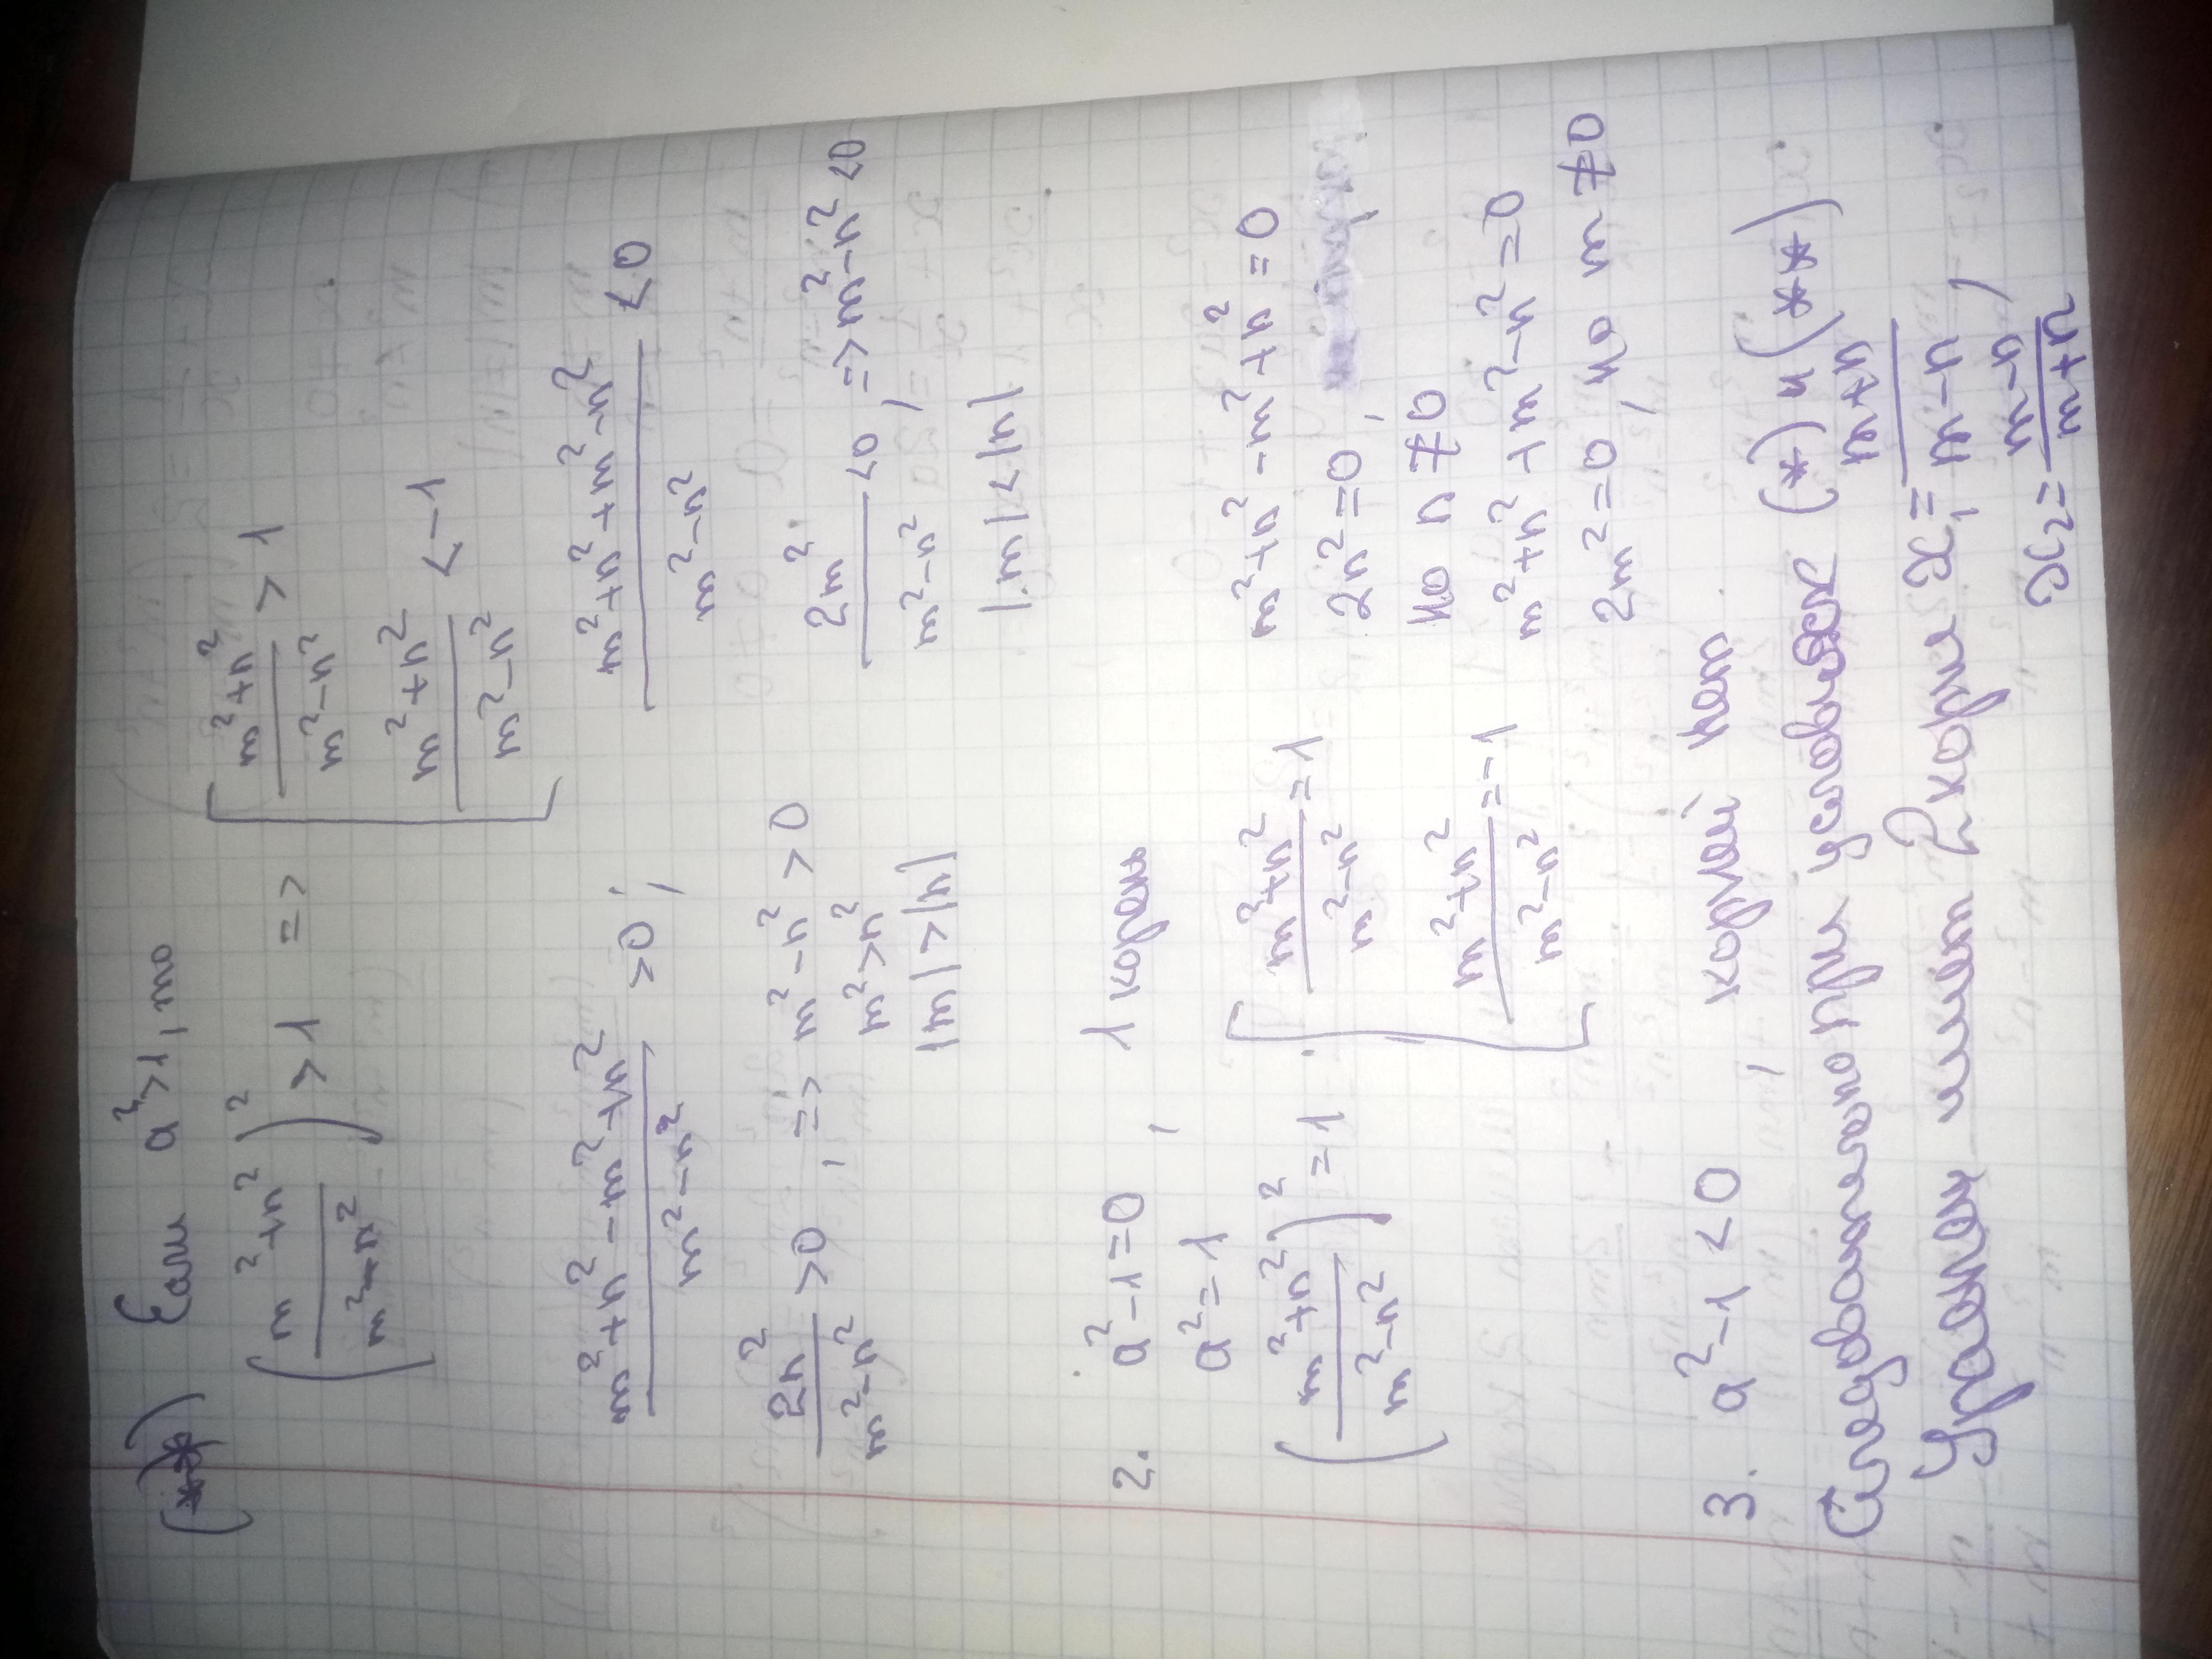 (**) Если a²>1, то
(m²+n²/m²-n²)² >1 => [ m²+n²/m²-n² > 1
m²+n²/m²-n² < -1
m²+n²-m²+n²/m²-n² >0; m²+n²+m²-n²/m²-n² <0
2n²/m²-n² >0, => m²-n²>0 2m²/m²-n² <0, => m²-n²<0
m²>n²
|m|>|n| |m|<|n|
2. a²-1=0, 1 корень
a²=1 m²+n²-m²+n²=0
(m²+n²/m²-n²)²=1 [ m²+n²/m²-n²=1 2n²=0,
но n≠0
m²+n²/m²-n²=-1 m²+n²+m²-n²=0
2m²=0, но m≠0
3. a²-1<0, корней нет.
Следовательно при условиях (*) и (**)
Уравнение имеет 2 корня x₁=m+n/m-n,
x₂=m-n/m+n